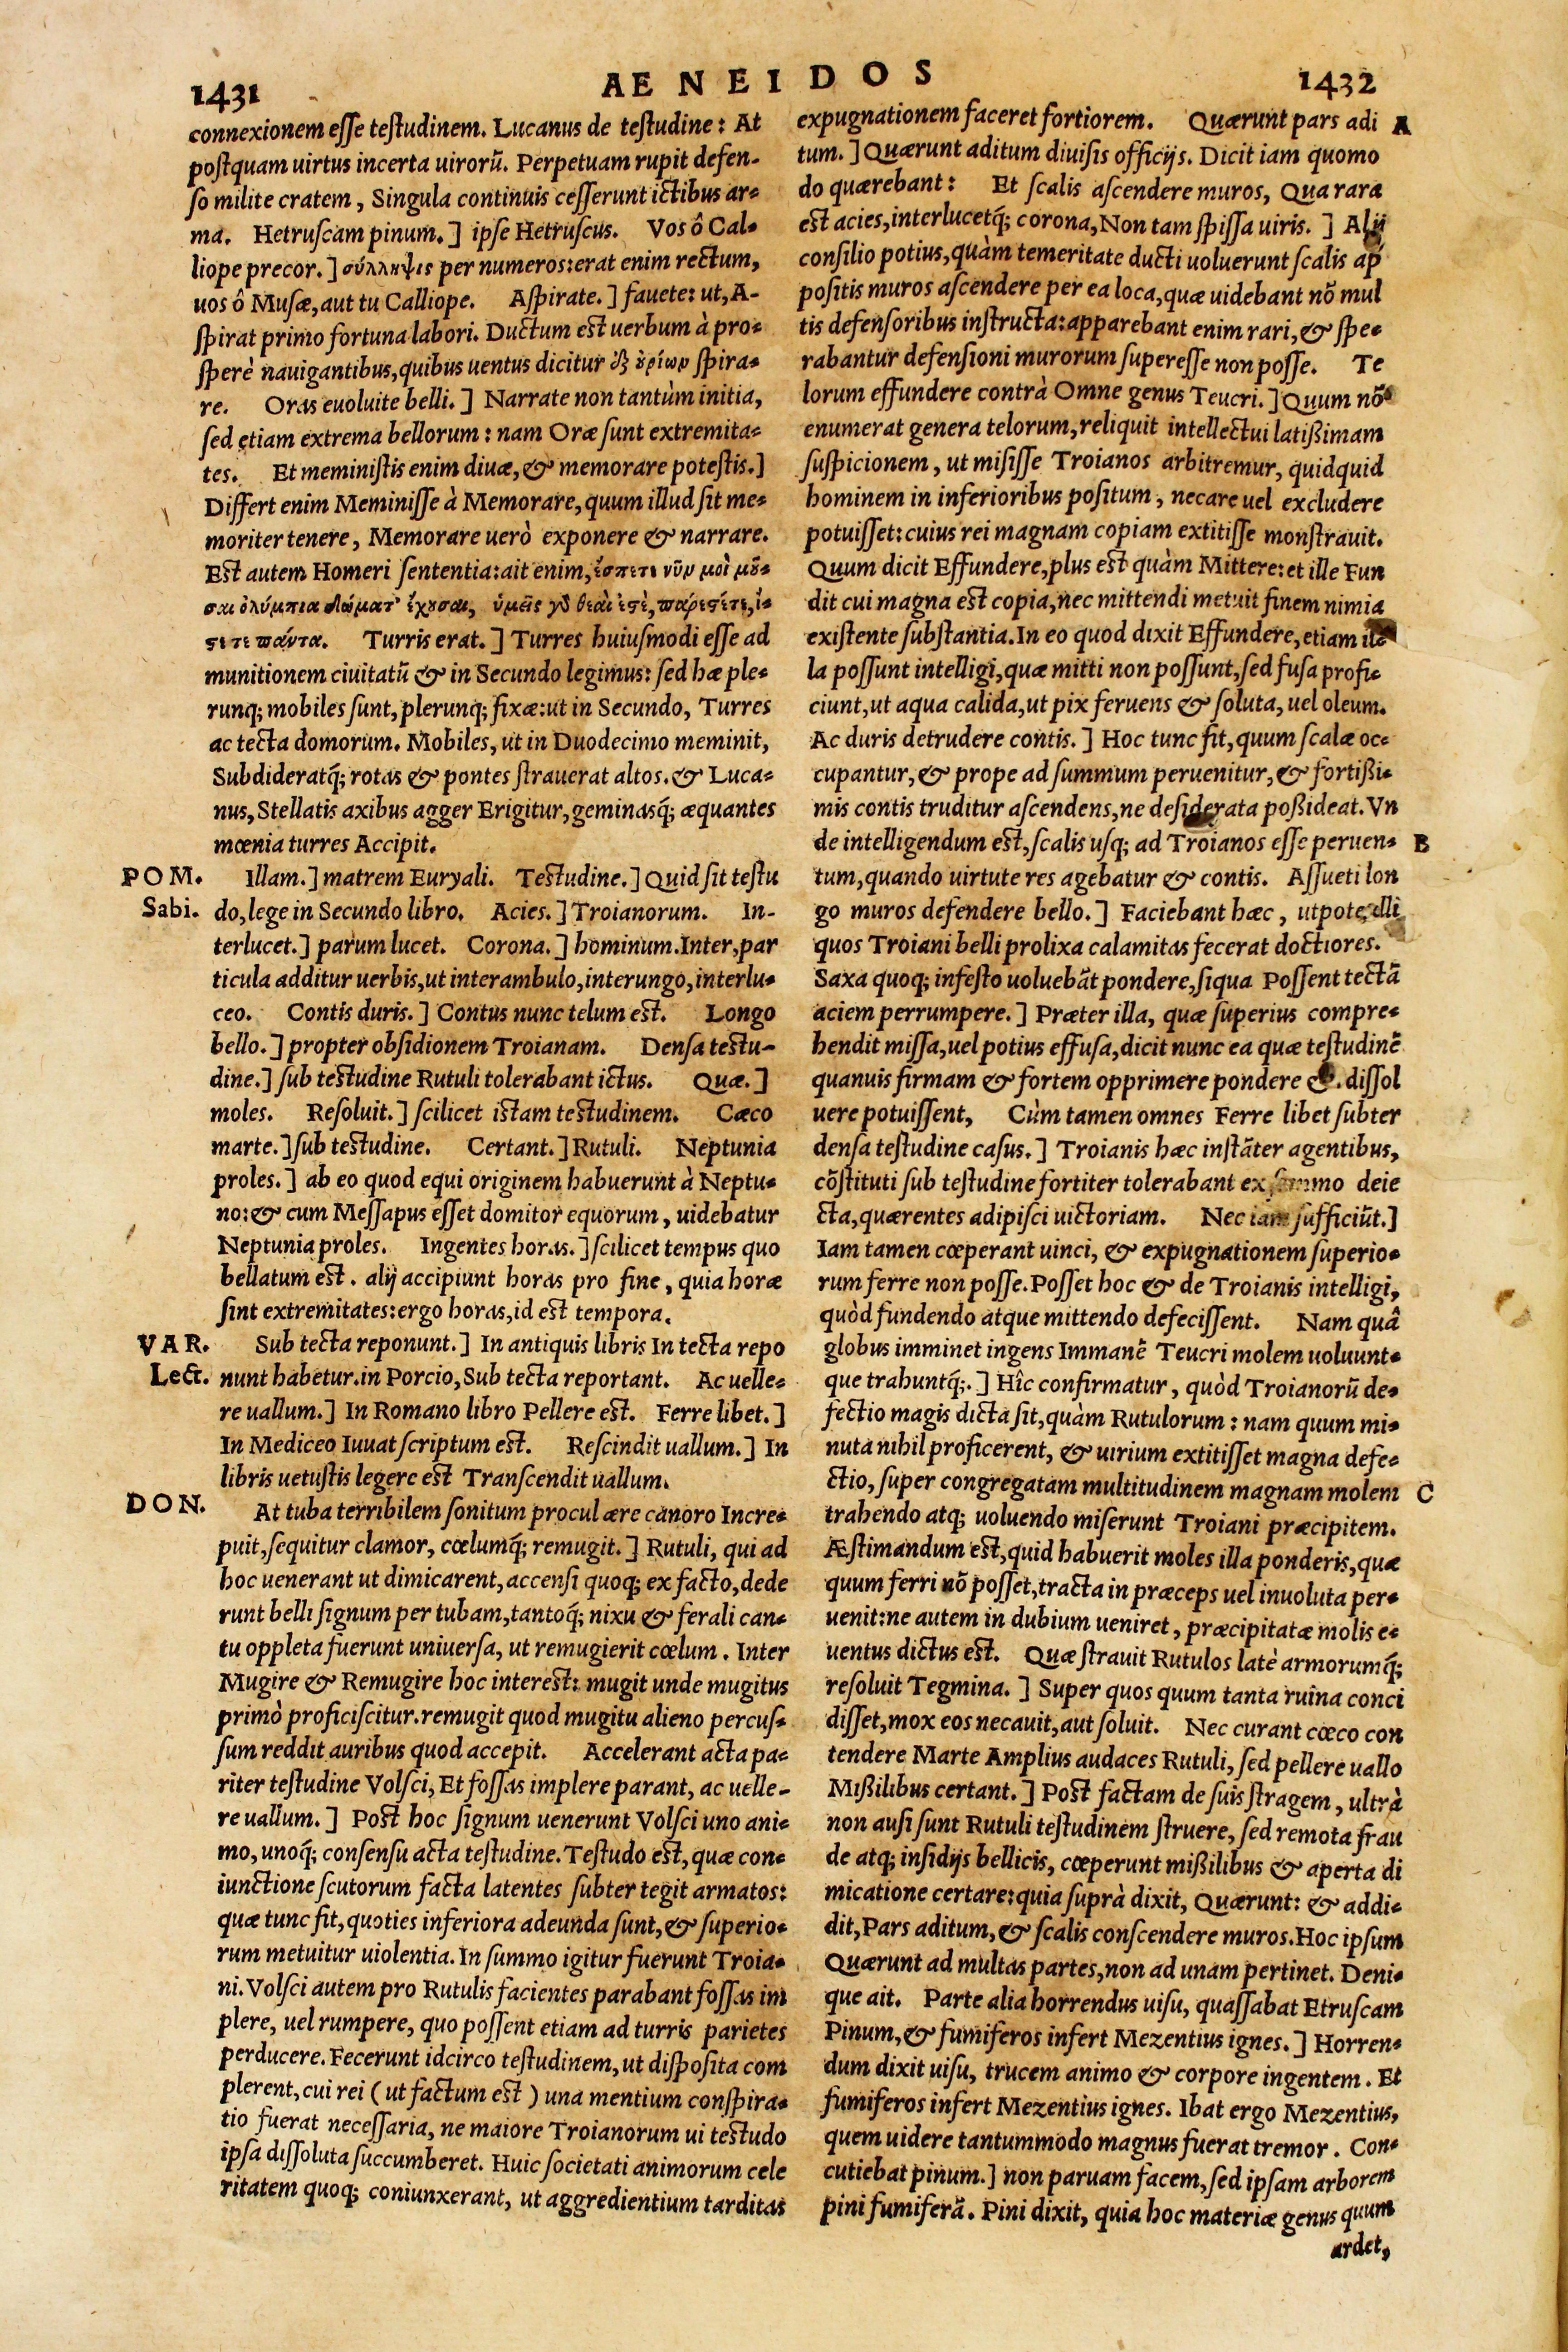 1431
AENEIDOS
1432
connexionem esse testudinem. Lucanus de testudine: At
postquam uirtus incerta uirorũ. Perpetuam rupit defen-
so milite cratem, Singula continuis cesserunt ictibus ar-
ma. Hetruscam pinum.] ipse Hetruscus. Vos ô Cal-
liope precor.] σύλληψις per numeros: erat enim rectum,
uos ô Musæ, aut tu Calliope. Aspirate.] fauete: ut, A-
spirat primo fortuna labori. Ductum est uerbum à pro-
sperè nauigantibus, quibus uentus dicitur ἐξ ὀρίων spira-
re. Oras euoluite belli.] Narrate non tantùm initia,
sed etiam extrema bellorum: nam Oræ sunt extremita-
tes. Et meministis enim diuæ, & memorare potestis.]
Differt enim Meminisse à Memorare, quum illud sit me-
moriter tenere, Memorare uerò exponere & narrare.
Est autem Homeri sententia: ait enim, ἔσπετε νῦν μοὶ μοῦ-
σαι ὀλύμπια δώματ' ἔχουσαι, ὑμεῖς γὸ θεαὶ ἐστὲ, πάρεστέτε, ἴ-
στε τε πάντα. Turris erat.] Turres huiusmodi esse ad
munitionem ciuitatũ & in Secundo legimus: sed hæ ple-
runq; mobiles sunt, plerunq; fixæ: ut in Secundo, Turres
ac tecta domorum. Mobiles, ut in Duodecimo meminit,
Subdideratq́; rotas & pontes strauerat altos. & Luca-
nus, Stellatis axibus agger Erigitur, geminasq́; æquantes
mœnia turres Accipit.
POM.
Sabi.
Illam.] matrem Euryali. Testudine.] Quid sit testu
do, lege in Secundo libro. Acies.] Troianorum. In-
terlucet.] parum lucet. Corona.] hominum. Inter, par
ticula additur uerbis, ut interambulo, interungo, interlu-
ceo. Contis duris.] Contus nunc telum est. Longo
bello.] propter obsidionem Troianam. Densa testu-
dine.] sub testudine Rutuli tolerabant ictus. Quæ.]
moles. Resoluit.] scilicet istam testudinem. Cæco
marte.] sub testudine. Certant.] Rutuli. Neptunia
proles.] ab eo quod equi originem habuerunt à Neptu-
no: & cum Messapus esset domitor equorum, uidebatur
Neptunia proles. Ingentes horas.] scilicet tempus quo
bellatum est. alij accipiunt horas pro fine, quia horæ
sint extremitates: ergo horas, id est tempora.
VAR.
Lect.
Sub tecta reponunt.] In antiquis libris In tecta repo
nunt habetur. in Porcio, Sub tecta reportant. Ac uelle-
re uallum.] In Romano libro Pellere est. Ferre libet.]
In Mediceo Iuuat scriptum est. Rescindit uallum.] In
libris uetustis legere est Transcendit uallum.
DON.
At tuba terribilem sonitum procul ære canoro Incre-
puit, sequitur clamor, cœlumq́; remugit.] Rutuli, qui ad
hoc uenerant ut dimicarent, accensi quoq; ex facto, dede
runt belli signum per tubam, tantoq́; nixu & ferali can-
tu oppleta fuerunt uniuersa, ut remugierit cœlum. Inter
Mugire & Remugire hoc interest: mugit unde mugitus
primò proficiscitur. remugit quod mugitu alieno percus-
sum reddit auribus quod accepit. Accelerant acta pa-
riter testudine Volsci, Et fossas implere parant, ac uelle-
re uallum.] Post hoc signum uenerunt Volsci uno ani-
mo, unoq́; consensu acta testudine. Testudo est, quæ con-
iunctione scutorum facta latentes subter tegit armatos:
quæ tunc fit, quoties inferiora adeunda sunt, & superio-
rum metuitur uiolentia. In summo igitur fuerunt Troia-
ni. Volsci autem pro Rutulis facientes parabant fossas im
plere, uel rumpere, quo possent etiam ad turris parietes
perducere. Fecerunt idcirco testudinem, ut disposita com
plerent, cui rei (ut factum est) una mentium conspira-
tio fuerat necessaria, ne maiore Troianorum ui testudo
ipsa dissoluta succumberet. Huic societati animorum cele
ritatem quoq; coniunxerant, ut aggredientium tarditas
expugnationem faceret fortiorem. Quærunt pars adi
A
tum.] Quærunt aditum diuisis officijs. Dicit iam quomo
do quærebant: Et scalis ascendere muros, Qua rara
est acies, interlucetq́; corona, Non tam spissa uiris.] Alij
consilio potius, quàm temeritate ducti uoluerunt scalis ap
positis muros ascendere per ea loca, quæ uidebant nõ mul
tis defensoribus instructa: apparebant enim rari, & spe-
rabantur defensioni murorum superesse non posse. Te
lorum effundere contrà Omne genus Teucri.] Quum nõ
enumerat genera telorum, reliquit intellectui latißimam
suspicionem, ut misisse Troianos arbitremur, quidquid
hominem in inferioribus positum, necare uel excludere
potuisset: cuius rei magnam copiam extitisse monstrauit.
Quum dicit Effundere, plus est quàm Mittere: et ille Fun
dit cui magna est copia, nec mittendi metuit finem nimia
existente substantia. In eo quod dixit Effundere, etiam il-
la possunt intelligi, quæ mitti non possunt, sed fusa profi-
ciunt, ut aqua calida, ut pix feruens & soluta, uel oleum.
Ac duris detrudere contis.] Hoc tunc fit, quum scalæ oc-
cupantur, & prope ad summum peruenitur, & fortißi-
mis contis truditur ascendens, ne desiderata poßideat. Vn
de intelligendum est, scalis usq; ad Troianos esse peruen-
B
tum, quando uirtute res agebatur & contis. Assueti lon
go muros defendere bello.] Faciebant hæc, utpote illi
quos Troiani belli prolixa calamitas fecerat doctiores.
Saxa quoq; infesto uoluebãt pondere, siqua Possent tectã
aciem perrumpere.] Præter illa, quæ superius compre-
hendit missa, uel potius effusa, dicit nunc ea quæ testudinẽ
quanuis firmam & fortem opprimere pondere &. dissol
uere potuissent, Cùm tamen omnes Ferre libet subter
densa testudine casus.] Troianis hæc instãter agentibus,
cõstituti sub testudine fortiter tolerabant ex summo deie
cta, quærentes adipisci uictoriam. Nec iam sufficiũt.]
Iam tamen cœperant uinci, & expugnationem superio-
rum ferre non posse. Posset hoc & de Troianis intelligi,
quòd fundendo atque mittendo defecissent. Nam quâ
globus imminet ingens Immanẽ Teucri molem uoluunt-
que trahuntq́;.] Hîc confirmatur, quòd Troianorũ de-
fectio magis dicta sit, quàm Rutulorum: nam quum mi-
nuta nihil proficerent, & uirium extitisset magna defe-
ctio, super congregatam multitudinem magnam molem
C
trahendo atq; uoluendo miserunt Troiani præcipitem.
Æstimandum est, quid habuerit moles illa ponderis, quæ
quum ferri nõ posset, tracta in præceps uel inuoluta per-
uenit: ne autem in dubium ueniret, præcipitatæ molis e-
uentus dictus est. Quæ strauit Rutulos latè armorumq́;
resoluit Tegmina.] Super quos quum tanta ruina conci
disset, mox eos necauit, aut soluit. Nec curant cœco con
tendere Marte Amplius audaces Rutuli, sed pellere uallo
Mißilibus certant.] Post factam de suis stragem, ultrà
non ausi sunt Rutuli testudinem struere, sed remota frau
de atq; insidijs bellicis, cœperunt mißilibus & aperta di
micatione certare: quia suprà dixit, Quærunt: & addi-
dit, Pars aditum, & scalis conscendere muros. Hoc ipsum
Quærunt ad multas partes, non ad unam pertinet. Deni-
que ait. Parte alia horrendus uisu, quassabat Etruscam
Pinum, & fumiferos infert Mezentius ignes.] Horren-
dum dixit uisu, trucem animo & corpore ingentem. Et
fumiferos infert Mezentius ignes. Ibat ergo Mezentius,
quem uidere tantummodo magnus fuerat tremor. Con-
cutiebat pinum.] non paruam facem, sed ipsam arborem
pini fumiferã. Pini dixit, quia hoc materiæ genus quum
ardet,